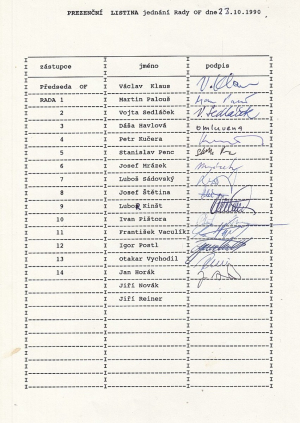 PREZENČNÍ LISTINA jednání Rady OF dne 23.10.1990
zástupce jméno podpis
Předseda OF Václav Klaus V. Klaus
RADA 1 Martin Palouš
2 Vojta Sedláček V. Sedláček
3 Dáša Havlová omluvena
4 Petr Kučera
5 Stanislav Penc
6 Josef Mrázek
7 Luboš Sádovský
8 Josef Štětina
9 Luboš Kinšt
10 Ivan Pištora
11 František Vaculík
12 Igor Postl
13 Otakar Vychodil
14 Jan Horák
Jiří Novák
Jiří Reiner